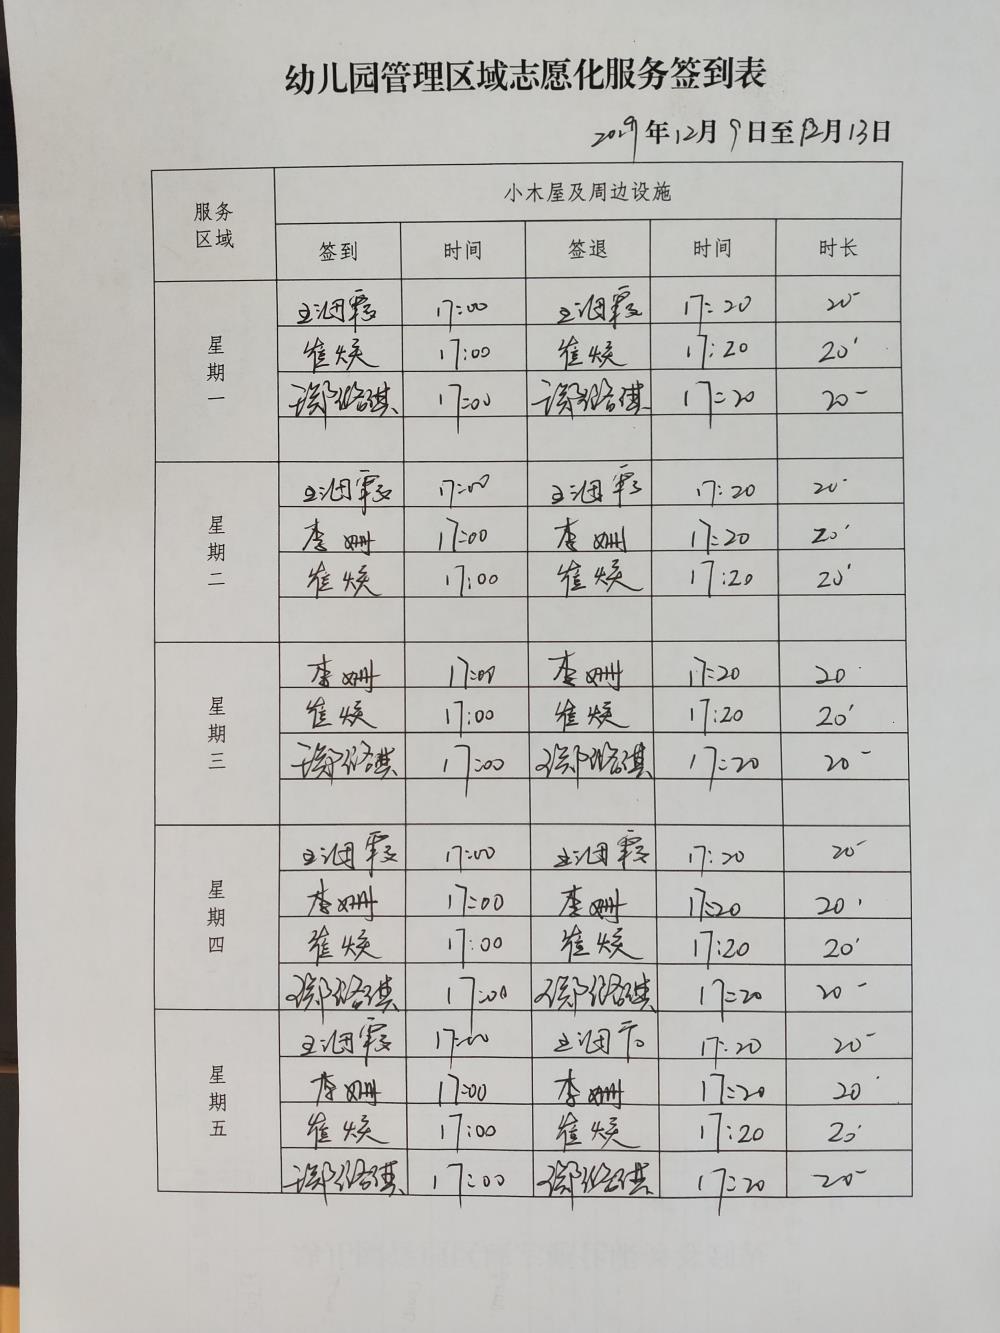 幼儿园管理区域志愿化服务签到表
2019年12月9日至12月13日
服务区域 小木屋及周边设施
签到 时间 签退 时间 时长
星期一
17:00 17:20 20'
崔焕 17:00 崔焕 17:20 20'
17:00 17:20 20'
星期二
17:00 17:20 20'
李姗 17:00 李姗 17:20 20'
崔焕 17:00 崔焕 17:20 20'
星期三
李姗 17:00 李姗 17:20 20
崔焕 17:00 崔焕 17:20 20'
17:00 17:20 20'
星期四
17:00 17:20 20'
李姗 17:00 李姗 17:20 20'
崔焕 17:00 崔焕 17:20 20'
17:00 17:20 20'
星期五
17:00 17:20 20'
李姗 17:00 李姗 17:20 20'
崔焕 17:00 崔焕 17:20 20'
17:00 17:20 20'